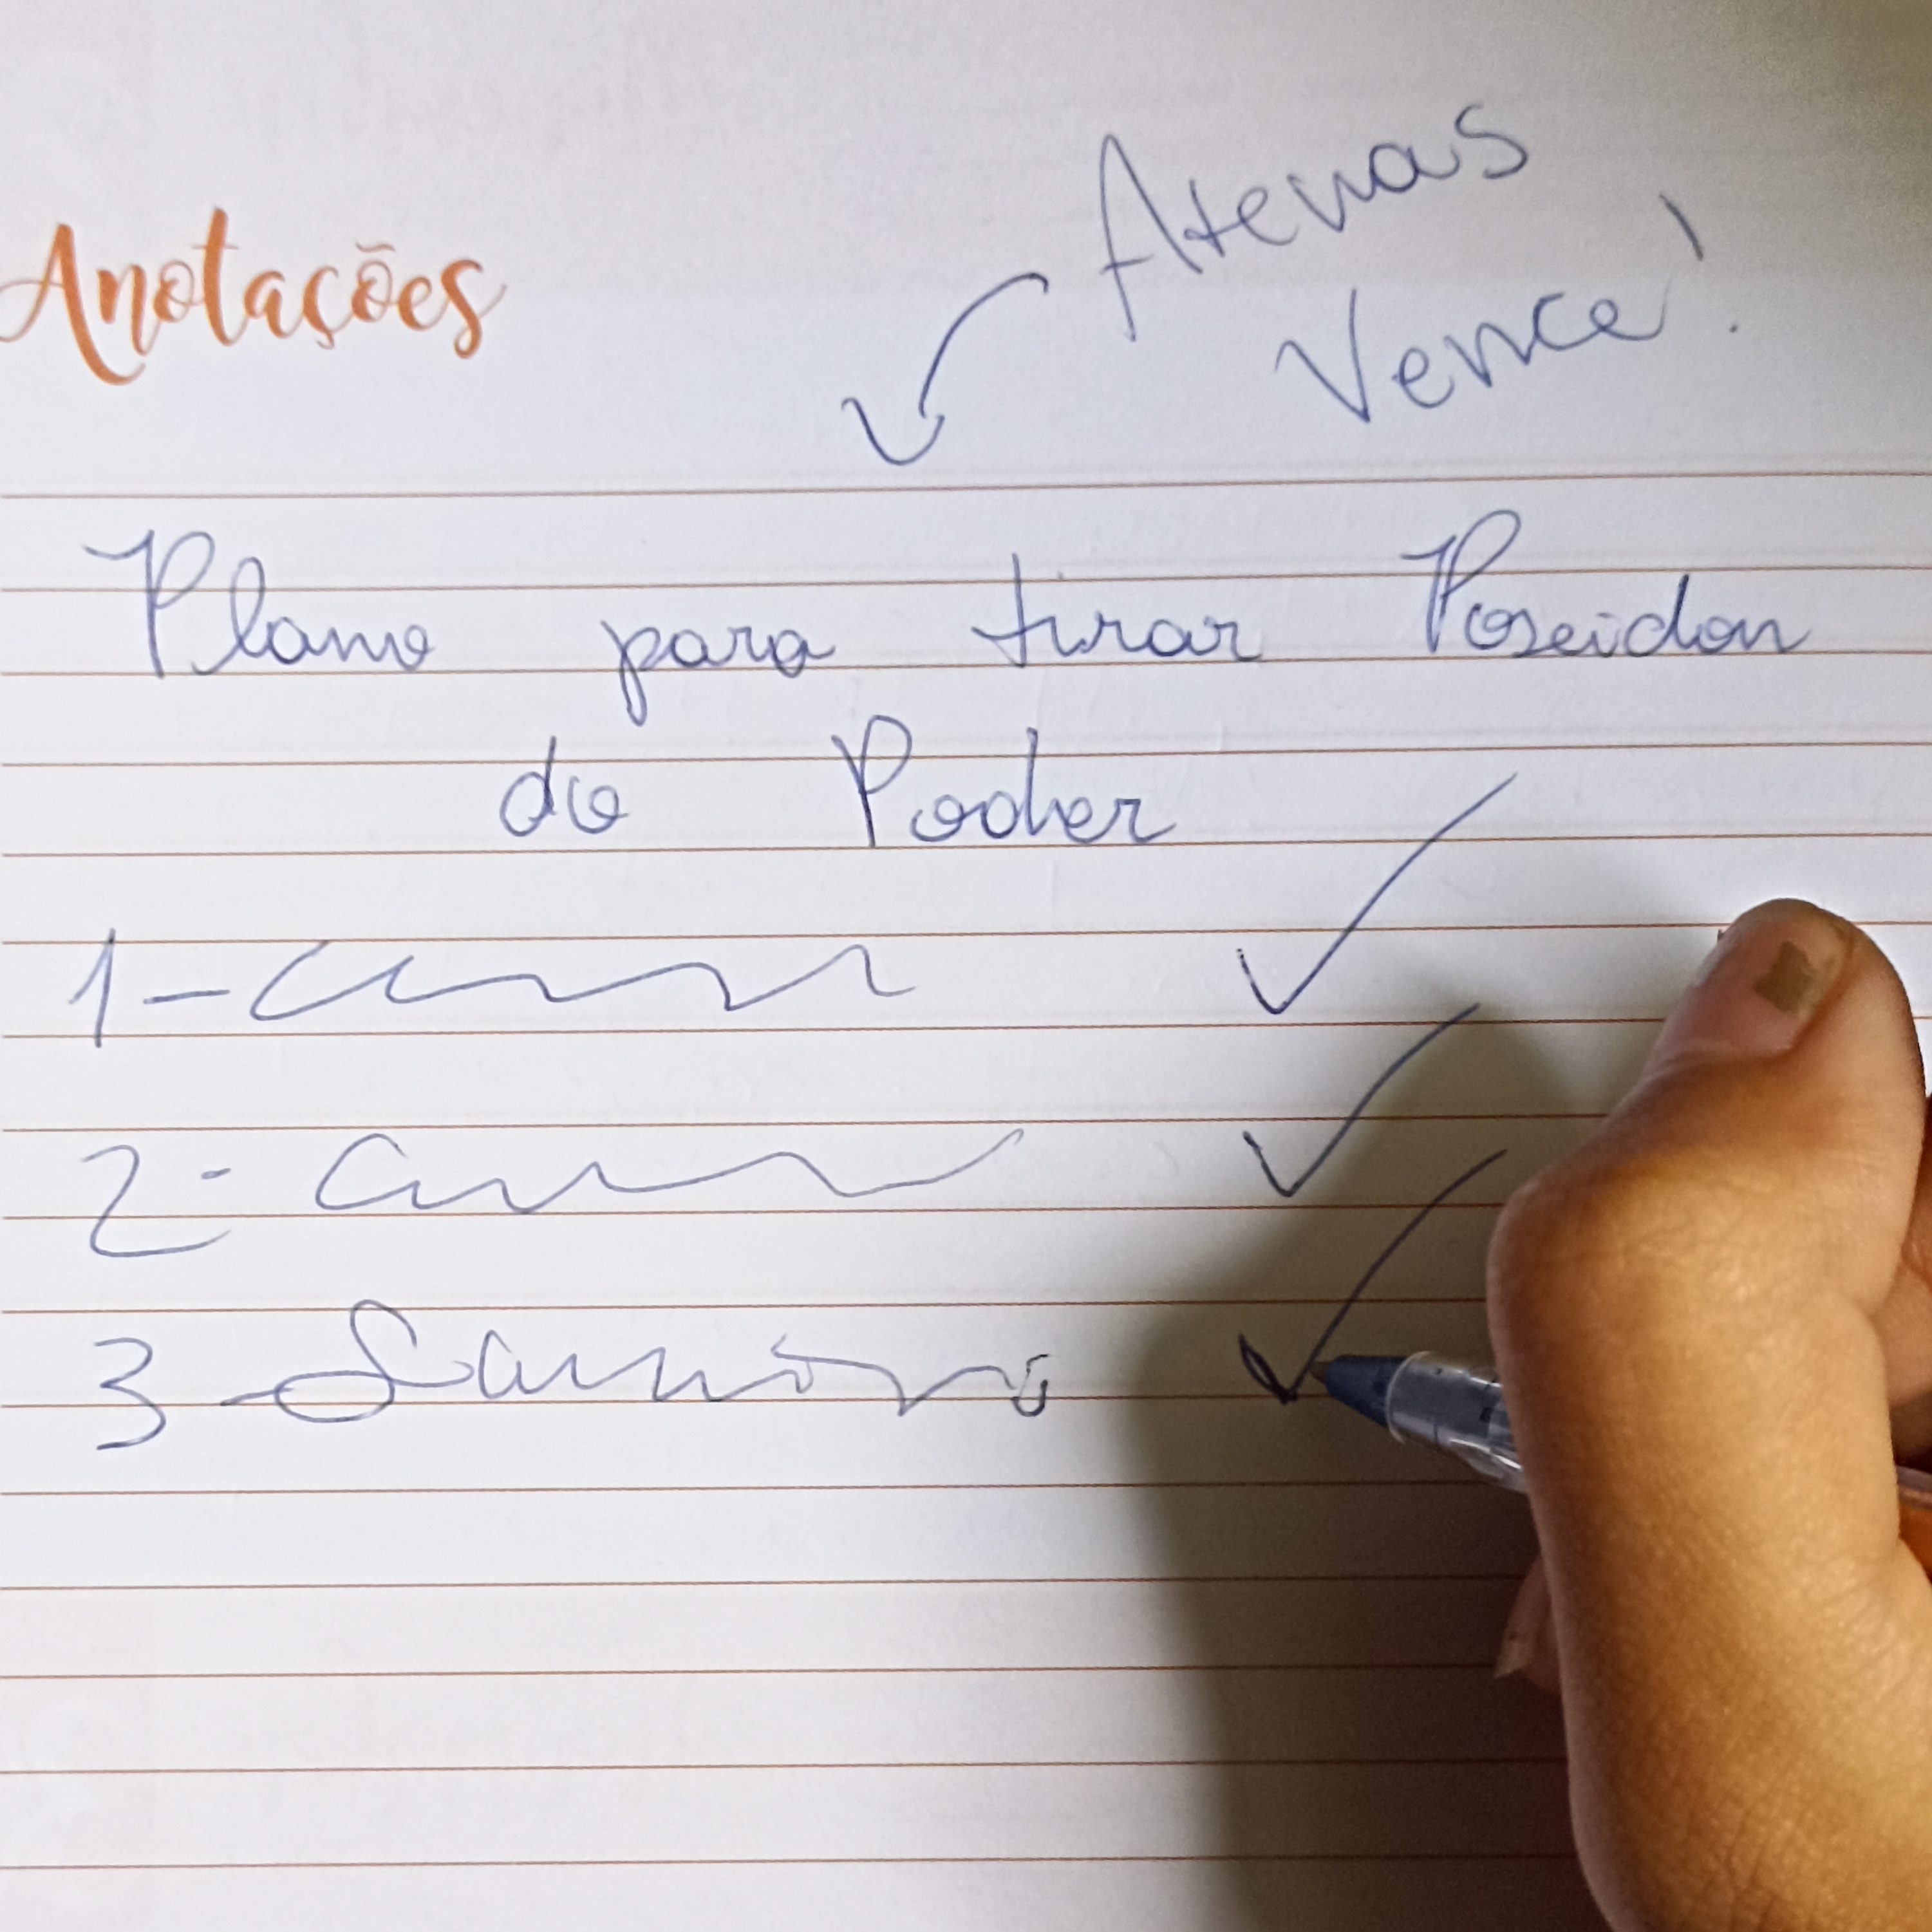 Anotações
Atenas
Vence!
Plano para tirar Poseidon
do Poder
1-
2-
3-